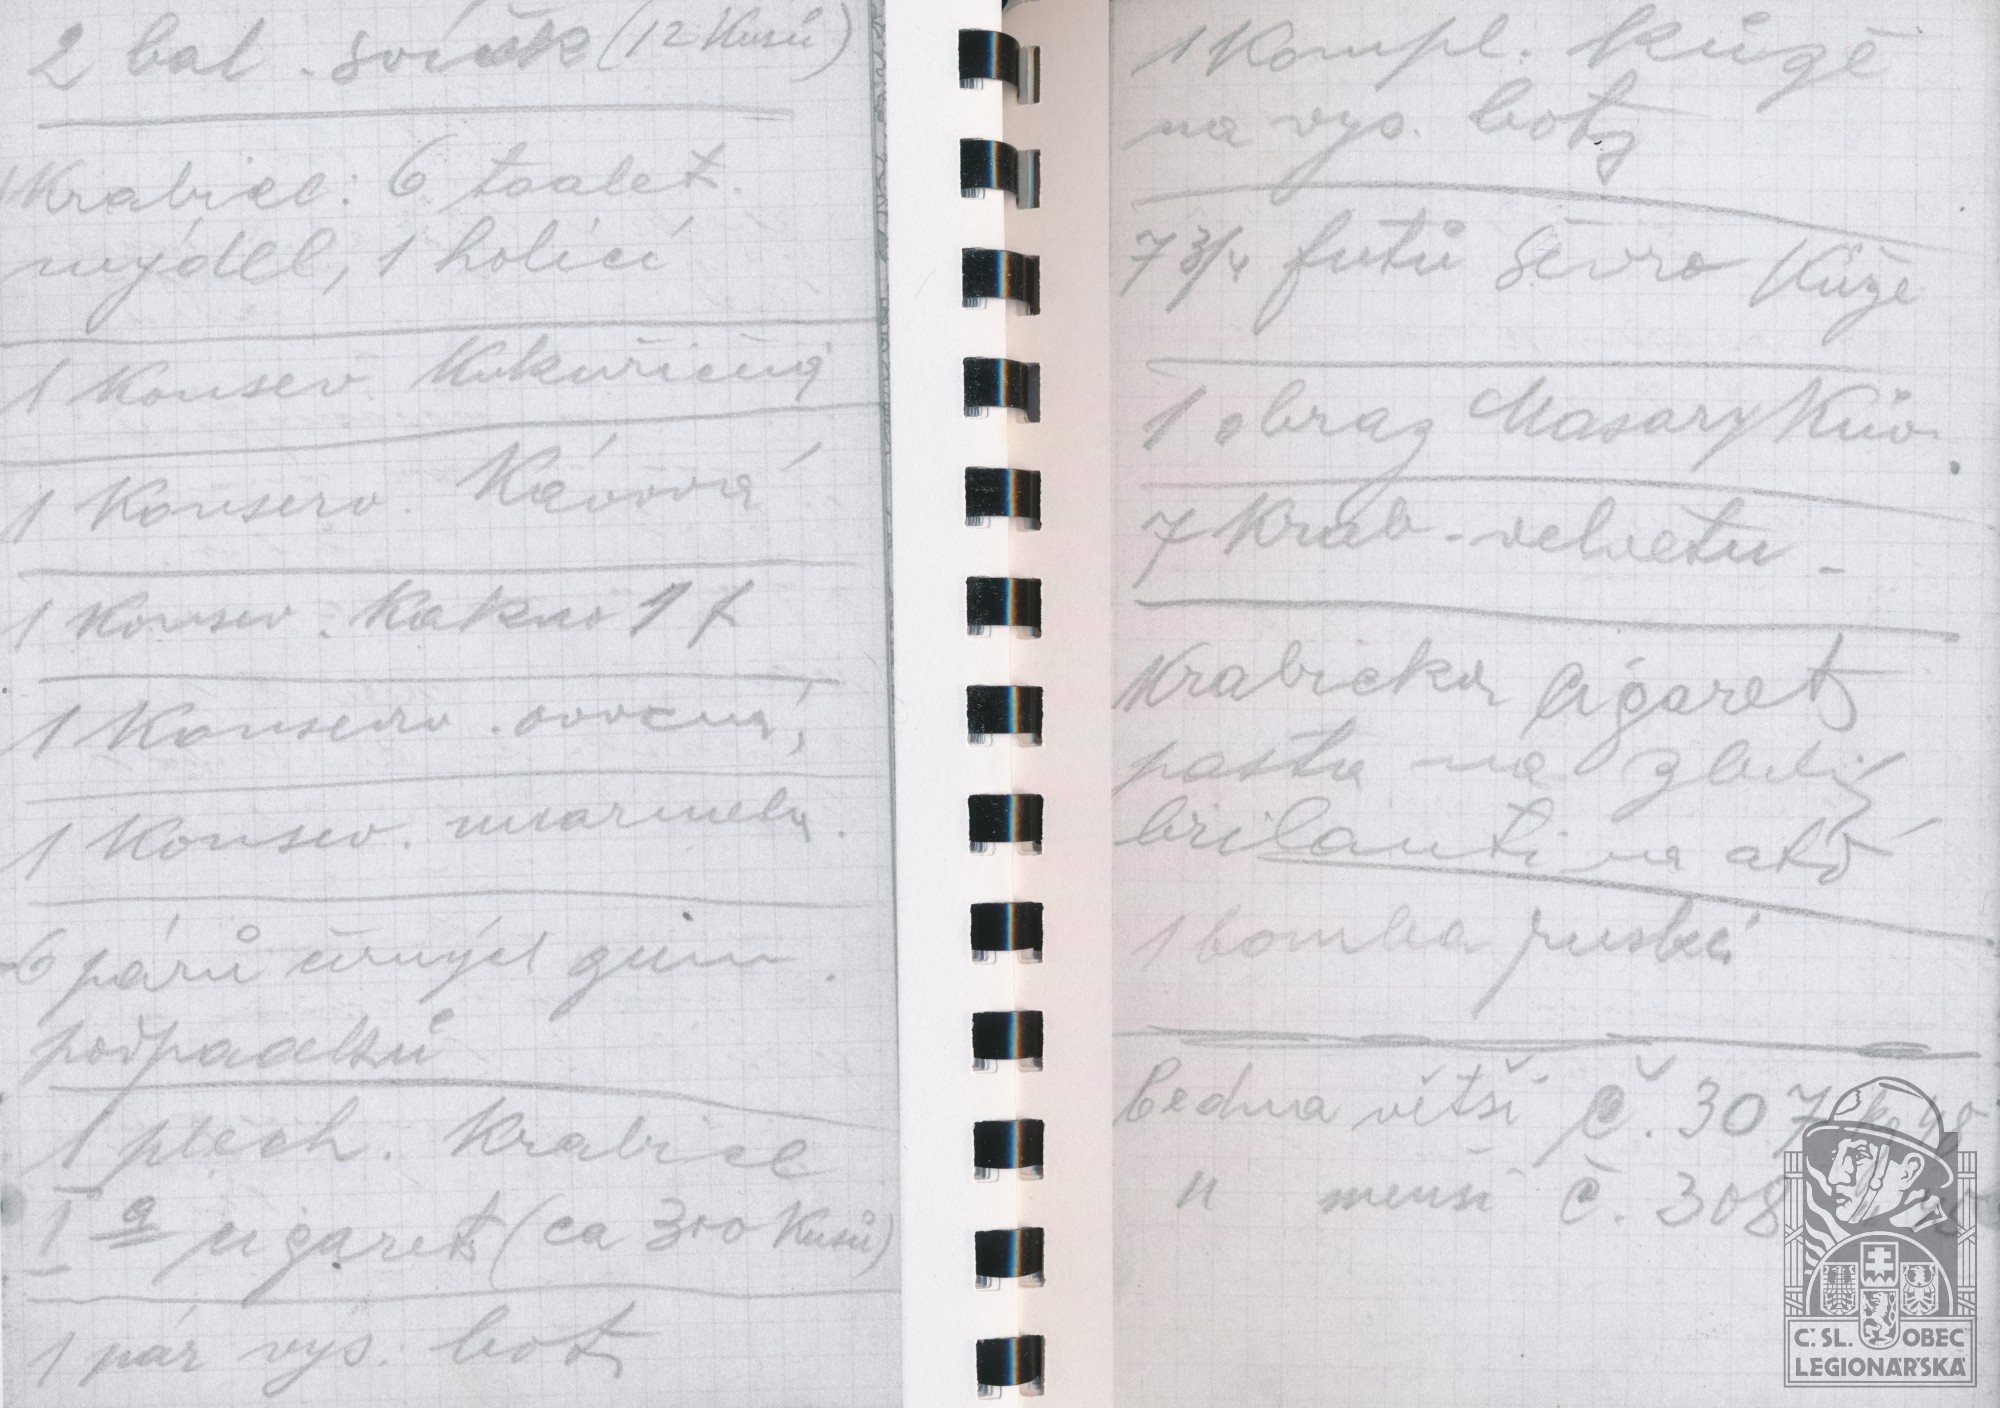 2 bal. svíček (12 kusů)
Krabice: 6 toalet.
mýdel, 1 holící
1 Konsev. Kukuřičná
1 Konserv. Kávová
1 Konsev. Kakao 1 f
1 Konserv. ovocná,
1 Konsev. marmela.
6 párů černých gum.
podpadků
1 plech. Krabice
I a cigaret (ca 300 kusů)
1 pár vys. bot
1 Kompl. kůže
na vys. boty
7 3/4 futů ševro Kůže
1 obraz Masarykův.
7 Krab. velvetu -
Krabička cigaret
pasta na
brilanti na
1 bomba ruská
bedna větší č. 307
" menší č. 308
Č. SL. OBEC
LEGIONÁŘSKÁ